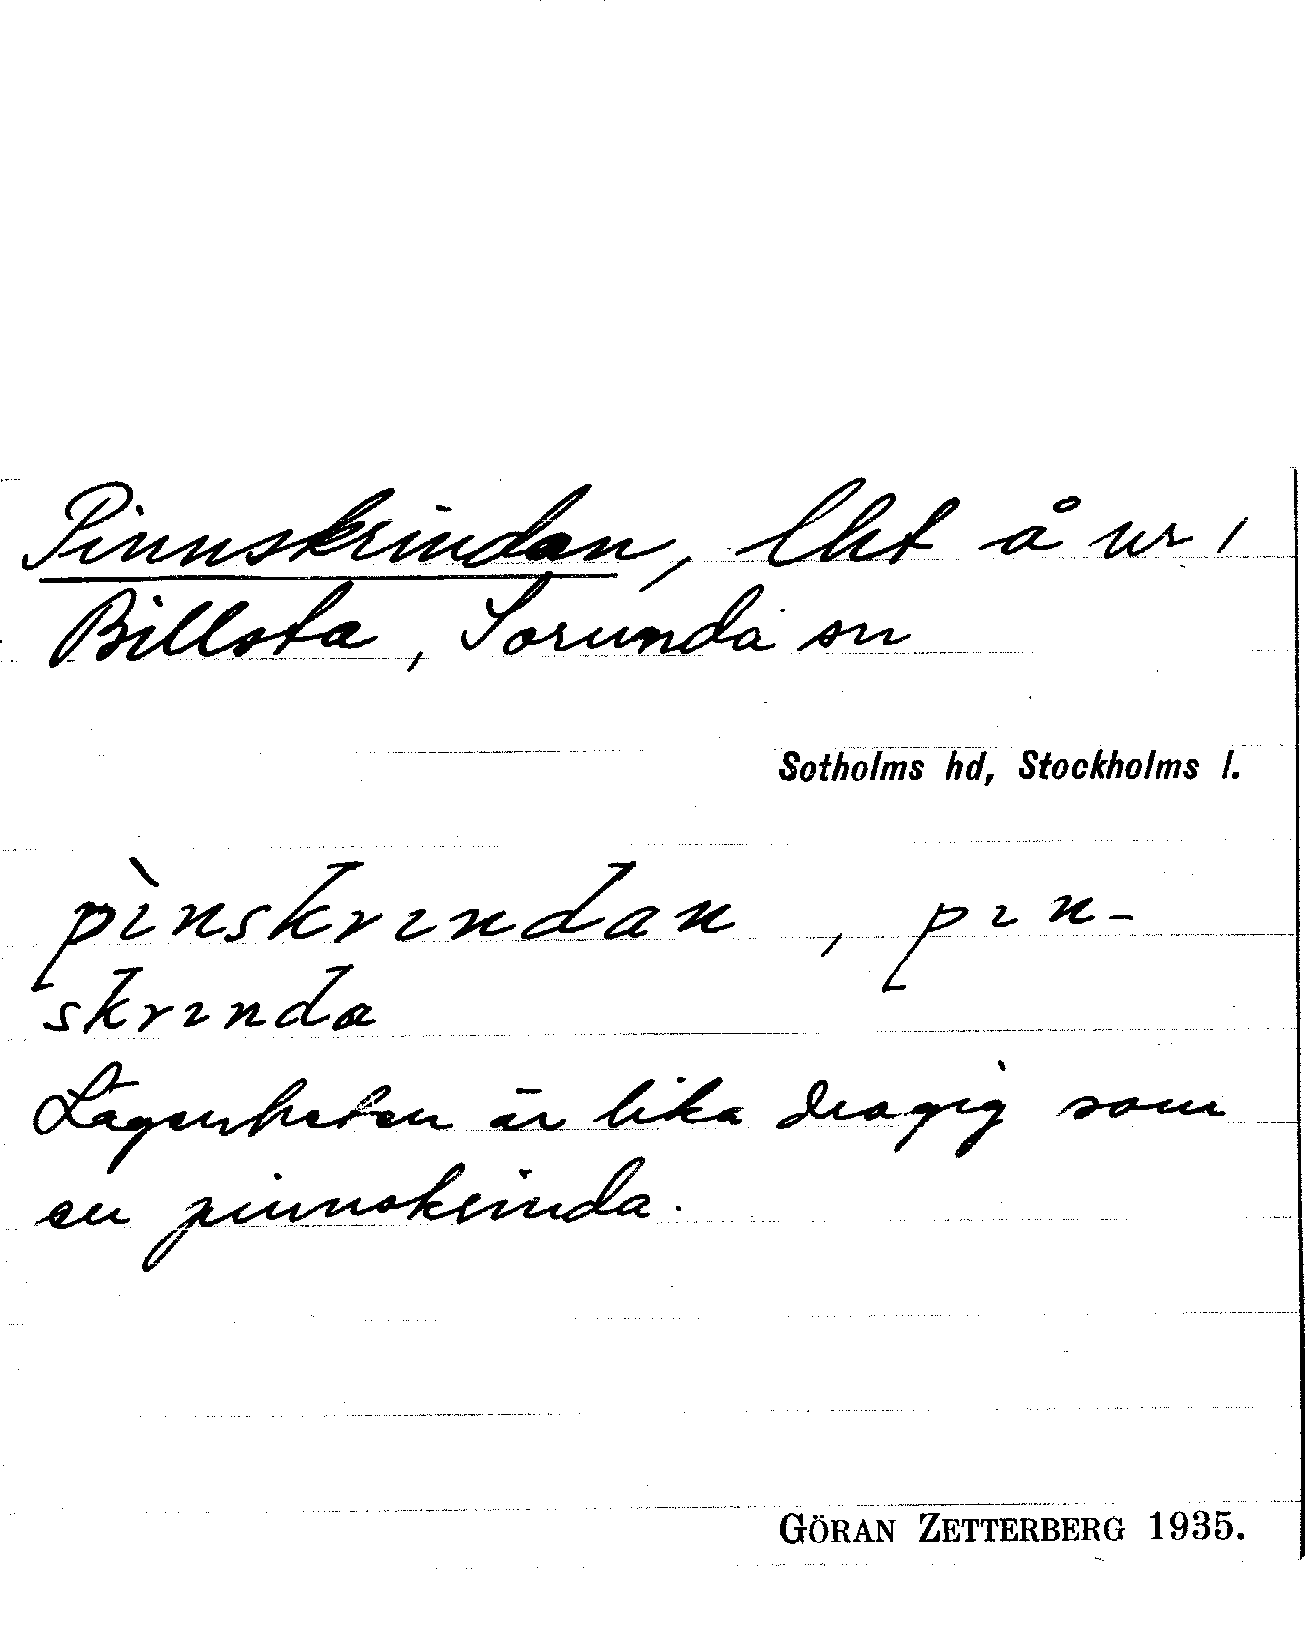 Pinnskrindan, lht å nr 1
Billsta, Sorunda sn
Sotholms hd, Stockholms l.
pìnskrından, pın-
skrında
Lägenheten är lika dragig som
en pinnskrinda.
GÖRAN ZETTERBERG 1935.